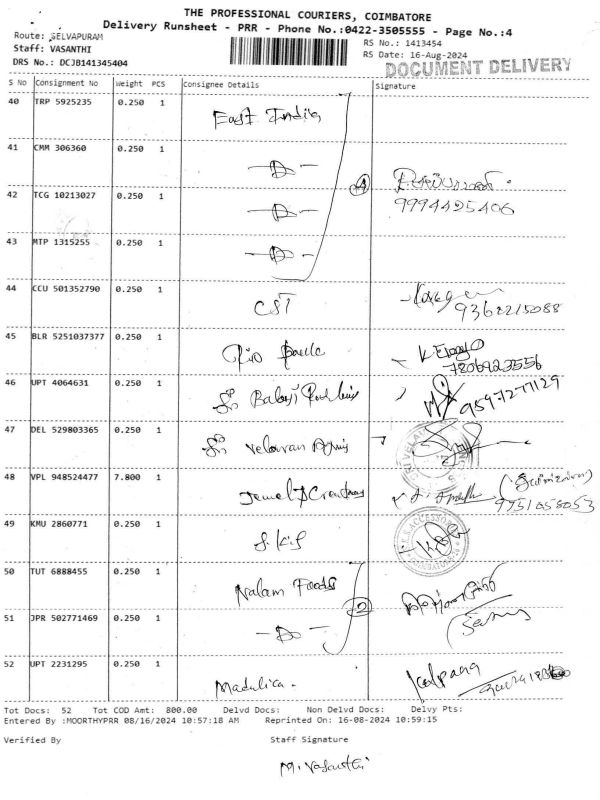 THE PROFESSIONAL COURIERS, COIMBATORE
Delivery Runsheet - PRR - Phone No.:0422-3505555 - Page No.:4
Route: SELVAPURAM
RS No.: 1413454
Staff: VASANTHI
RS Date: 16-Aug-2024
DRS No.: DCJB141345404
DOCUMENT DELIVERY
S No Consignment No Weight PCS Consignee Details Signature
40 TRP 5925235 0.250 1 East India
41 CMM 306360 0.250 1 -Do-
4
42 TCG 10213027 0.250 1 -Do- 9994425406
43 MTP 1315255 0.250 1 -Do-
44 CCU 501352790 0.250 1 CST 9362215088
45 BLR 5251037377 0.250 1 Rio 7806923556
46 UPT 4064631 0.250 1 ஸ்ரீ Balaji 9597277129
47 DEL 529803365 0.250 1 ஸ்ரீ Velavan
48 VPL 948524477 7.800 1 Jewel 9751058053
49 KMU 2860771 0.250 1
50 TUT 6888455 0.250 1 Nalam Foods
2
51 JPR 502771469 0.250 1 -Do-
52 UPT 2231295 0.250 1 Madulica. Kalpana
Tot Docs: 52 Tot COD Amt: 800.00 Delvd Docs: Non Delvd Docs: Delvy Pts:
Entered By :MOORTHYPRR 08/16/2024 10:57:18 AM Reprinted On: 16-08-2024 10:59:15
Verified By Staff Signature
M. Vasanthi